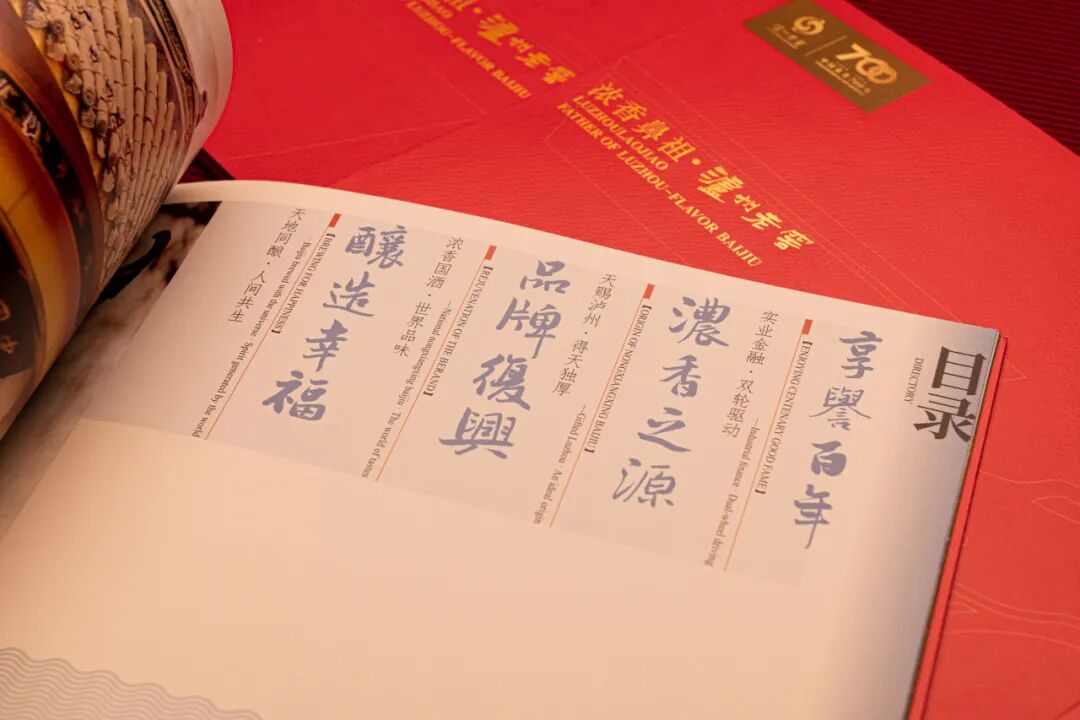 目录
DIRECTORY
享譽百年
【ENJOYING CENTENARY GOOD FAME】
实业金融·双轮驱动
—Industrial finance Dual-wheel driving
濃香之源
【ORIGIN OF NONGXIANGXING BAIJIU】
天赐泸州·得天独厚
—Gifted Luzhou · An ideal origin
品牌復興
【REJUVENATION OF THE BERAND】
浓香国酒·世界品味
—National nongxiangxing baijiu · The world of tastes
釀造幸福
【BREWING FOR HAPPINESS】
天地同酿·人间共生
—Baijiu brewed with the universe Spirit generated by the world
浓香鼻祖·泸州老窖
LUZHOULAOJIAO
FATHER OF LUZHOU-FLAVOR BAIJIU
祖·泸州老窖
LUZHOU-FLAVOR BAIJIU
700